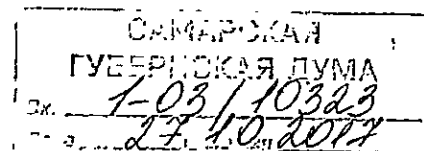 САМАРСКАЯ
ГУБЕРНСКАЯ ДУМА
Вх. 1-03/10323
27.10.2017